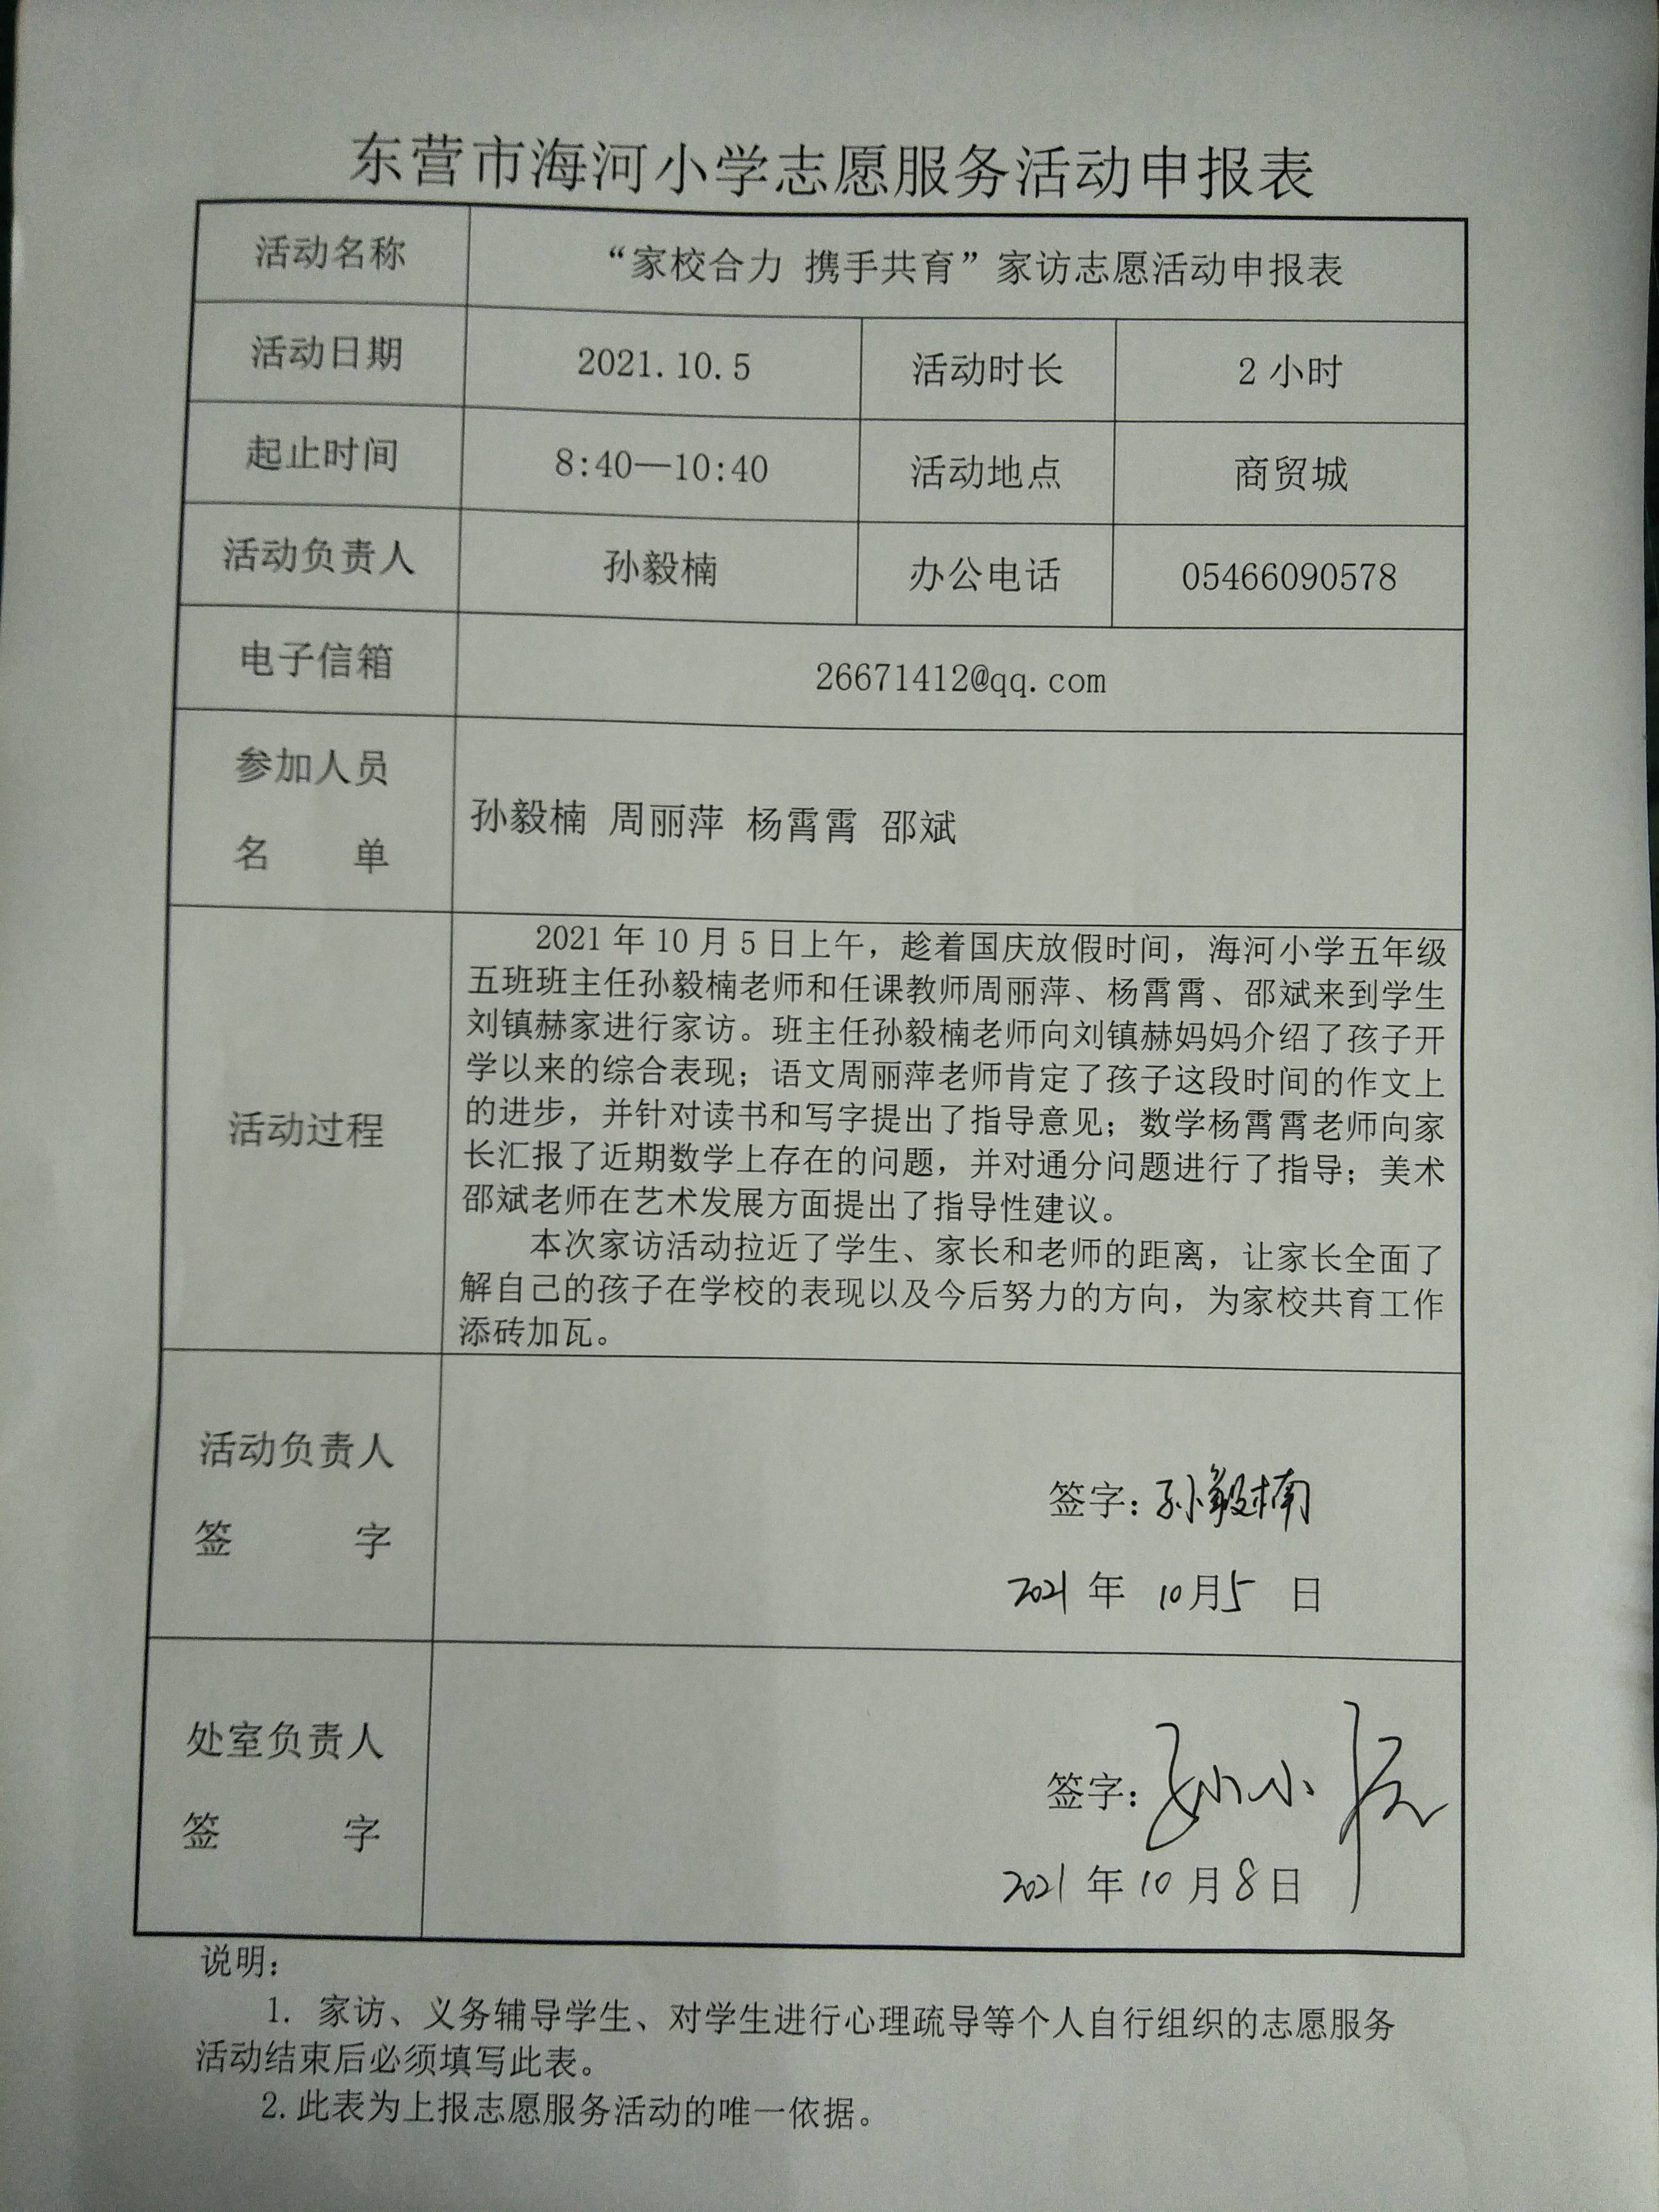 东营市海河小学志愿服务活动申报表
活动名称 “家校合力 携手共育”家访志愿活动申报表
活动日期 2021.10.5 活动时长 2 小时
起止时间 8:40—10:40 活动地点 商贸城
活动负责人 孙毅楠 办公电话 05466090578
电子信箱 26671412@qq.com
参加人员
名 单
孙毅楠 周丽萍 杨霄霄 邵斌
活动过程
2021 年 10 月 5 日上午，趁着国庆放假时间，海河小学五年级
五班班主任孙毅楠老师和任课教师周丽萍、杨霄霄、邵斌来到学生
刘镇赫家进行家访。班主任孙毅楠老师向刘镇赫妈妈介绍了孩子开
学以来的综合表现；语文周丽萍老师肯定了孩子这段时间的作文上
的进步，并针对读书和写字提出了指导意见；数学杨霄霄老师向家
长汇报了近期数学上存在的问题，并对通分问题进行了指导；美术
邵斌老师在艺术发展方面提出了指导性建议。
本次家访活动拉近了学生、家长和老师的距离，让家长全面了
解自己的孩子在学校的表现以及今后努力的方向，为家校共育工作
添砖加瓦。
活动负责人
签 字
签字：孙毅楠
2021 年 10 月 5 日
处室负责人
签 字
签字：孙小
2021 年 10 月 8 日
说明：
1. 家访、义务辅导学生、对学生进行心理疏导等个人自行组织的志愿服务
活动结束后必须填写此表。
2.此表为上报志愿服务活动的唯一依据。